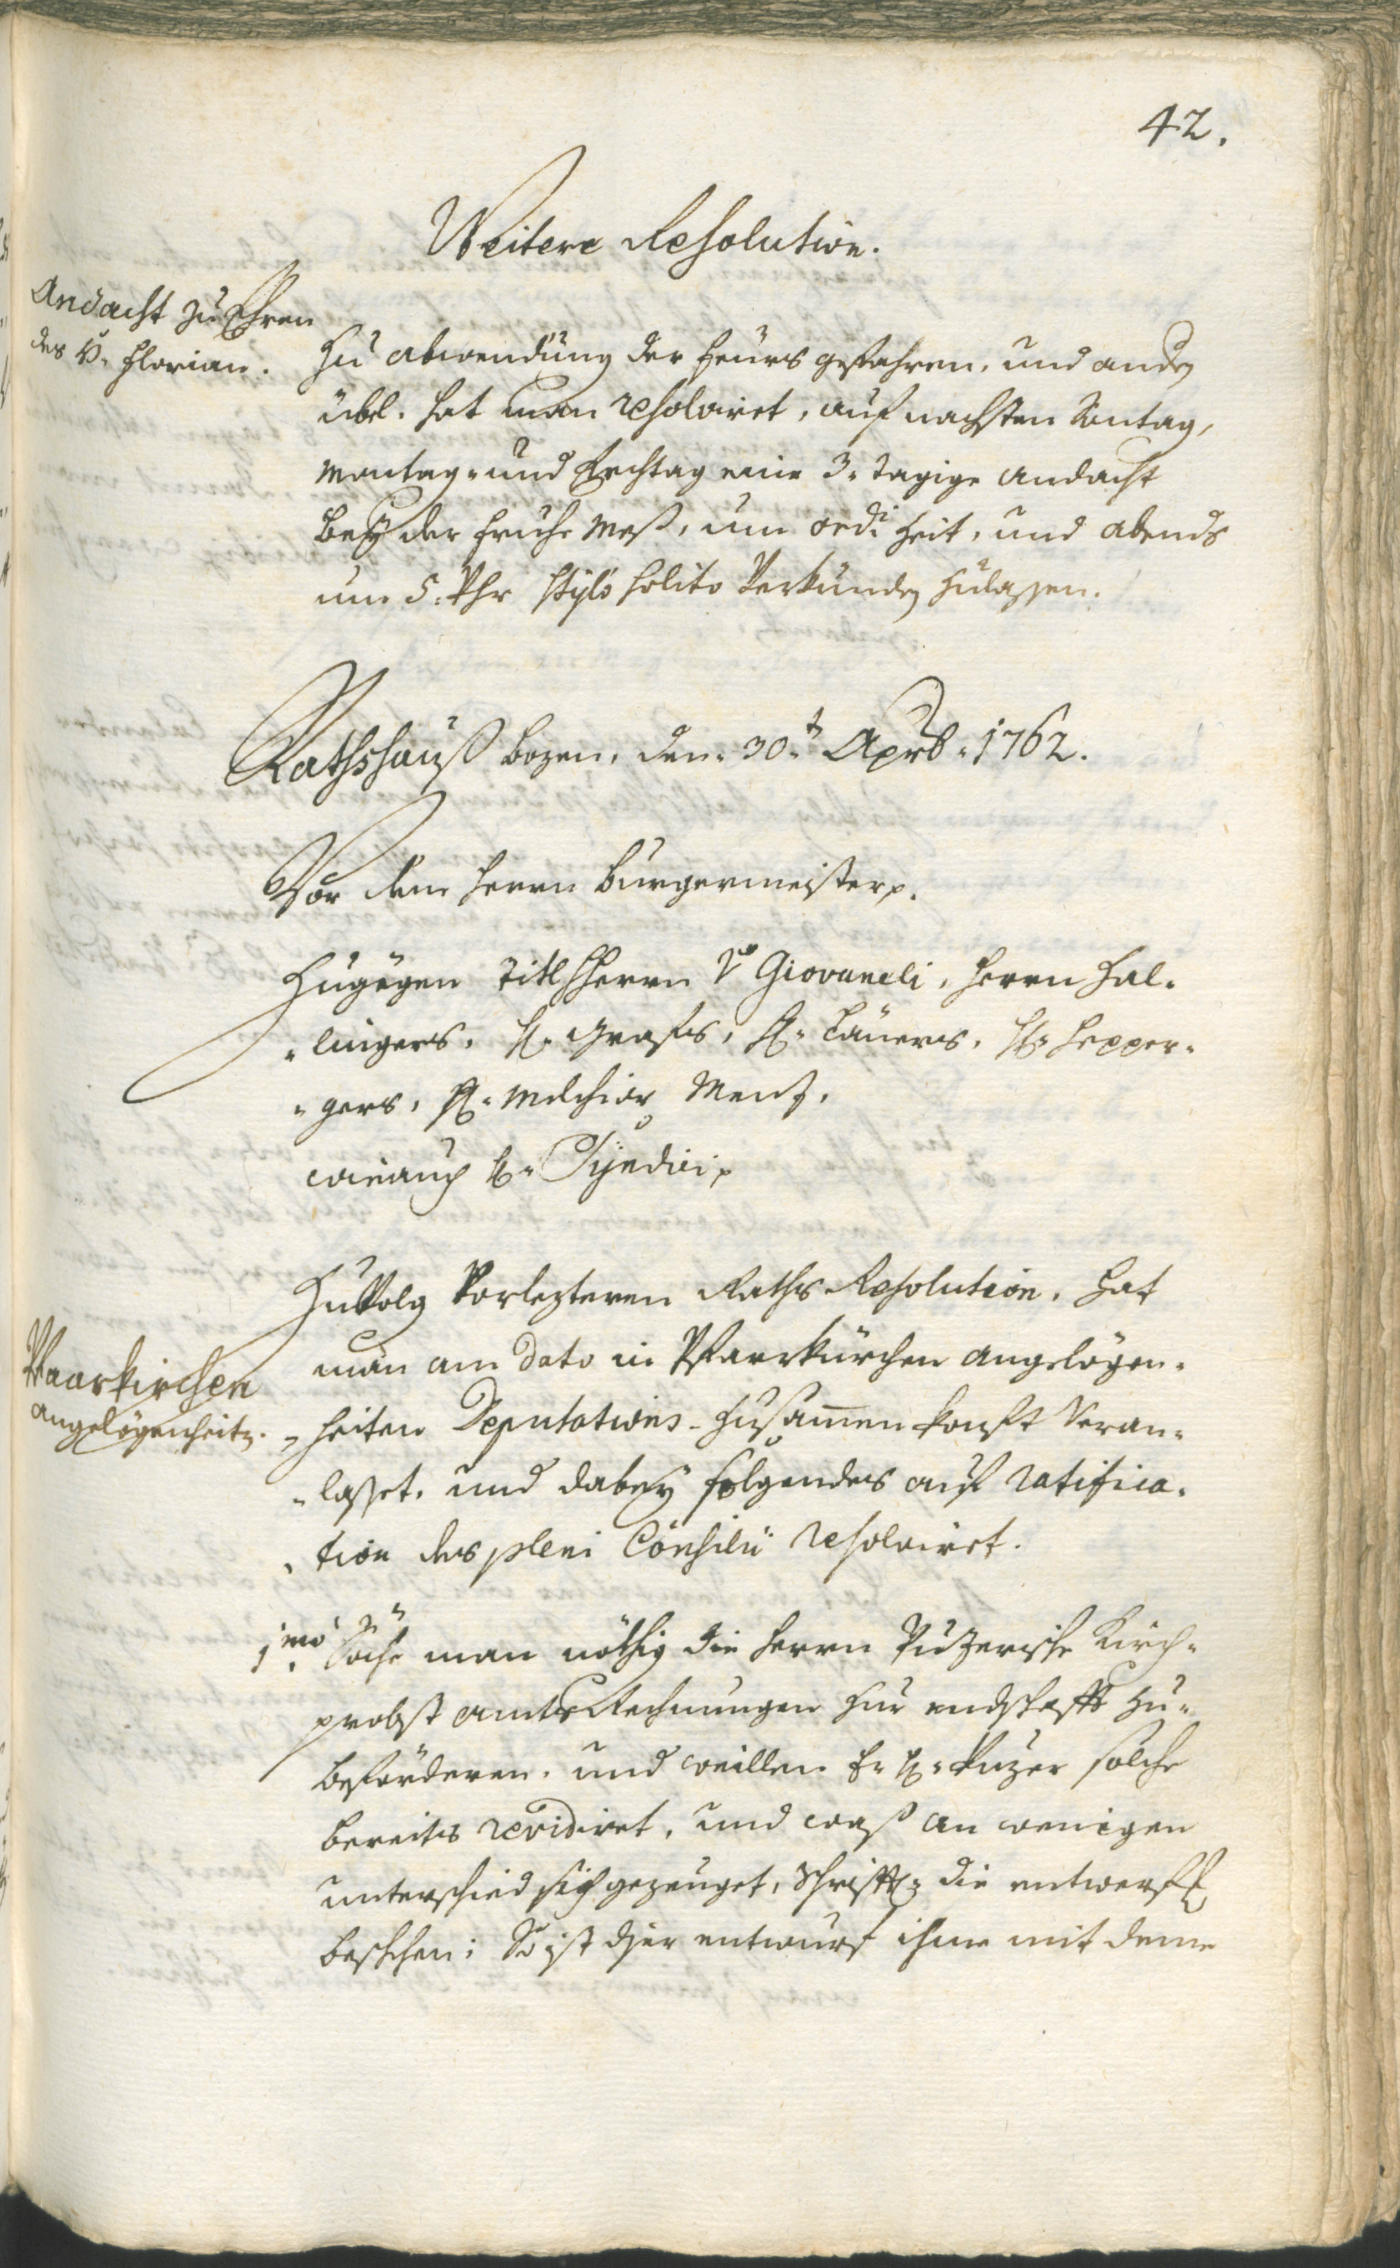 42.
Weitere Resolution.
Andacht zu Ehren
des V. Florian.
Zu abwendung der feürs gefahren, und andern
übel. hat man resolviret, auf nachsten Sontag,
Montag- und Erchtag eine 3. tagige Andacht
bey der fruhe Meß, um ordi Zeit, und abends
um 5. Uhr stylo solito Verkünden zulassen.
Rathshauß bozen, den 30.t April 1762.
Vor dem herrn burgermeister p.
Zugegen Titl Herrn v Giovaneli, herrn Hal-
-lingers, H. Grafs, H. Lauers, H. Hepper-
-gers, H. Melchior Menz,
wieauch H. Syndici p
Zufolg Vorlezteren Raths Resolution, hat
man am dato in Pfarrkürchen angelögen-
-heiten Deputations-Zusamenkonft Veran-
-lasset, und dabey folgendes auf ratifica-
-tion des pleni Consilii resolviret.
Pfaarkirchen
angelögenheitn.
1.mo Sache man nöthig die herrn Puzerische Kirch-
probst amts Rechnungen zur endschafft zu-
beförderen, und weillen H. Puzer solche
bereits revidiret, und waß an wenigen
unterschied sich gezeuget, Schrifftl. die entwerff
beschehen; So ist dser entwurf ihme mit deme